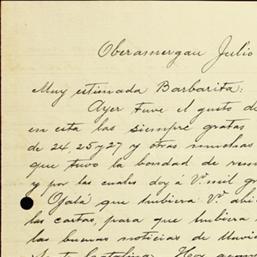 Oberamergau Julio
Muy estimada Barbarita:
Ayer tuve el gusto de
en esta las siempre gratas
de 24, 25 y 27 y otras muchas
que tuvo la bondad de
y por las cuales doy á Vd. mil
Ojalá que hubiera Vd.
las cartas, para que hubiera
las buenas noticias de